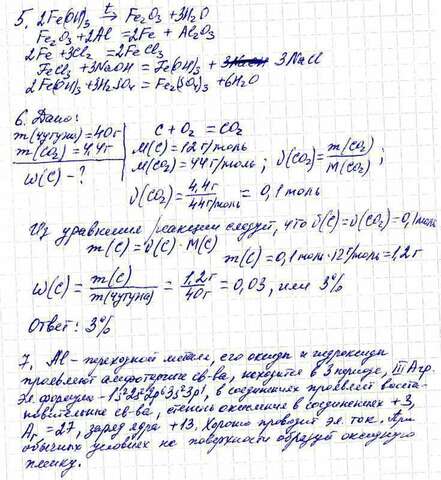 5. 2Fe(OH)3 t→ Fe2O3 + 3H2O
Fe2O3 + 2Al = 2Fe + Al2O3
2Fe + 3Cl2 = 2FeCl3
FeCl3 + 3NaOH = Fe(OH)3 + 3NaCl
2Fe(OH)3 + 3H2SO4 = Fe2(SO4)3 + 6H2O
6. Дано:
m(чугуна) = 40г
m(CO2) = 4,4г
ω(C) - ?
C + O2 = CO2
M(C) = 12 г/моль
M(CO2) = 44 г/моль ; υ(CO2) = m(CO2)/M(CO2) ;
υ(CO2) = 4,4г/44г/моль = 0,1 моль
Из уравнения реакции следует, что υ(C) = υ(CO2) = 0,1 моль
m(C) = υ(C) · M(C) m(C) = 0,1 моль · 12 г/моль = 1,2 г
ω(C) = m(C)/m(чугуна) = 1,2г/40г = 0,03, или 3%
Ответ: 3%
7. Al - переходной металл, его оксиды и гидроксиды
проявляют амфотерные св-ва, находится в 3 периоде, III А гр.
Эл. формула - 1s²2s²2p⁶3s²3p¹, в соединениях проявляет восста-
новительные св-ва, степень окисления в соединениях +3,
Ar = 27, заряд ядра +13. Хорошо проводит эл. ток. При
обычных условиях на поверхности образует оксидную
пленку.